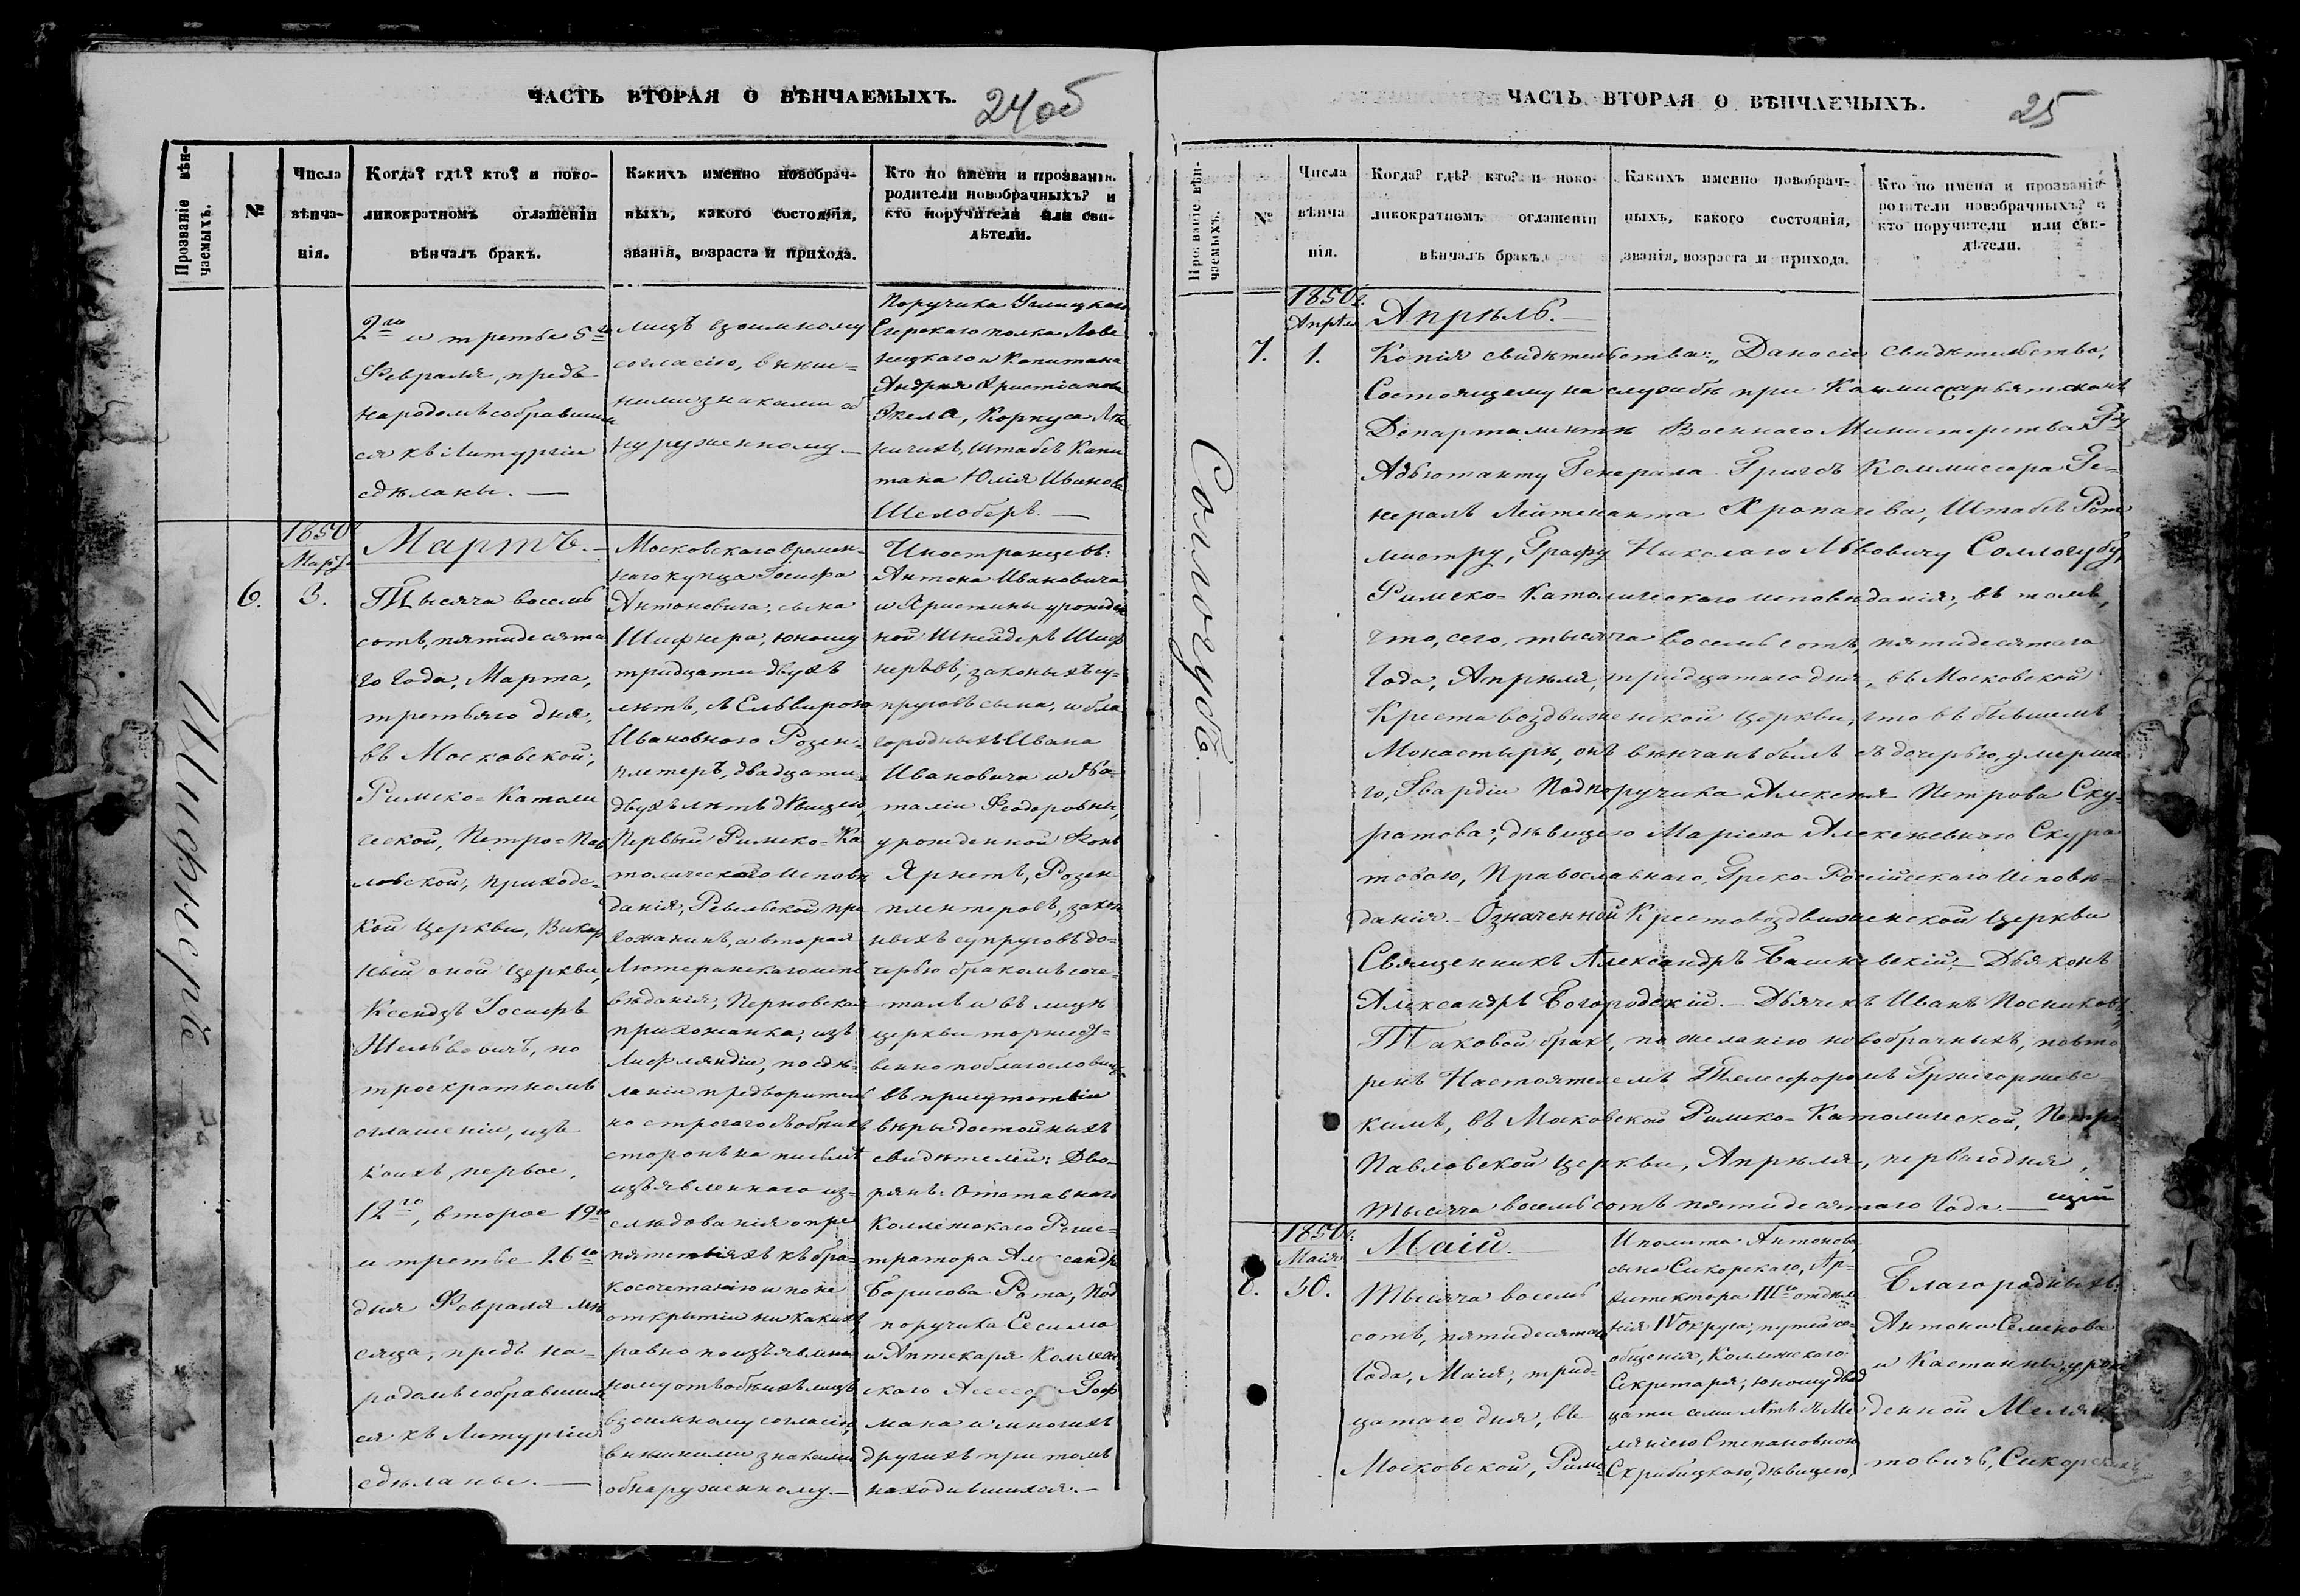 ЧАСТЬ ВТОРАЯ О ВѢНЧАЕМЫХЪ.
24об
Прозваніе вѣн-
чаемыхъ.
№
Числа
вѣнча-
нія.
Когда? гдѣ? кто? и поко-
ликократномъ оглашеніи
вѣнчалъ бракъ.
Какихъ именно новобрач-
ныхъ, какого состоянія,
званія, возраста и прихода.
Кто по имени и прозванію.
родители новобрачныхъ? и
кто поручители или сви-
дѣтели.
2го и третье 5го
Февраля, предъ
народомъ собравшим
ся къ Литургіи
сдѣланы. —
лицъ взаимному
согласію, внѣш-
ними знаками об
наруженному. —
Поручика Углицкаго
Егерскаго полка Лове
ницкаго и Капитана
Андрея Христіанова
Экела, Корпуса Лѣс
ничихъ, Штабсъ Капи
тана Юлія Иванова
Шелоберъ. —
Шифнеръ
1850
Март
6.
3.
Мартъ. —
Тысяча восемь
сотъ, пятидесята
го года, Марта,
третьяго дня,
въ Московской,
Римско-Католи
ческой, Петро-Пав
ловской, приходс-
кой церкви, Викар
ный оной церкви,
Ксендзъ Іосифъ
по
троекратномъ
оглашеніи, изъ
коихъ, первое,
12го, второе 19го
и третье 26го
дня Февраля мѣ
сяца, предъ на-
родомъ собравшим
ся къ Литургіи
сдѣланы. —
Московскаго времен-
наго купца Іосифа
Антоновича, сына
Шифнера, юношу
тридцати двухъ
лѣтъ, съ Ельвирою
Ивановною Розен-
плетеръ, двадцати
двухъ лѣтъ дѣвицею,
Первый Римско-Ка
толическаго исповѣ
данія, Ревельской при
хожанинъ, а вторая
Лютеранскаго испо
вѣданія, Перновская
прихожанка, изъ
Лифляндіи, по сдѣ-
ланіи предворитель
но строгаго съ обѣихъ
сторонъ на письмѣ
изъявленнаго из-
слѣдованія о пре
пятствіяхъ къ бра-
косочетанію и по не
открытіи никакихъ,
равно по изъявлен
ному отъ обѣихъ лицъ
взаимному согласію,
внѣшними знаками
обнаруженному. —
Иностранцевъ:
Антона Ивановича
и Христины урожден
ной Шнейдеръ Шиф
неровъ, законныхъ су-
пруговъ сына, и бла
городныхъ Ивана
Ивановича и Ата-
таліи Феодоровны,
урожденной Фонъ
Ярнетъ, Розен
плентеровъ, закон
ныхъ супруговъ до-
черью бракомъ соче-
талъ и въ лицѣ
церкви торжест-
венно поблагословилъ,
въ присутствіи
вѣры достойныхъ
свидѣтелей: Дво-
рянъ: Отставнаго
Коллежскаго Регис-
тратора Александра
Борисова Рота, Под
поручика
и Аптекаря Коллеж
скаго Ассесора Гоф
мана и многихъ
другихъ при томъ
находившихся. —
ЧАСТЬ ВТОРАЯ О ВѢНЧАЕМЫХЪ.
25
Прозваніе вѣн-
чаемыхъ.
№
Числа
вѣнча
нія.
Когда? гдѣ? кто? и поко-
ликократномъ оглашеніи
вѣнчалъ бракъ.
Какихъ именно новобрач-
ныхъ, какого состоянія,
званія, возраста и прихода.
Кто по имени и прозванію
родители новобрачныхъ? и
кто поручители или сви-
дѣтели.
Соллогубъ. —
1850г.
Апрѣл
7.
1.
Апрѣль. —
Копія свидѣтельства: „Дано сіе свидѣтельство,
Состоящему на службѣ при Коммиссаріятскомъ
Департаментѣ Военнаго Министерства Гну
Адъютанту Генерала Кригсъ Коммиссара Ге-
нералъ Лейтенанта Храпачева, Штабсъ Рот
мистру, Графу Николаю Львовичу Соллогубу,
Римско-Католическаго исповѣданія, въ томъ,
что, сего, тысяча восемь сотъ, пятидесятаго
Года, Апрѣля, тридцатаго дня, въ Московской
Крестовоздвиженской церкви, что въ бывшемъ
Монастырѣ, онъ вѣнчанъ былъ съ дочерью, умерша
го, Гвардіи Подпоручика Алексѣя Петрова Ску-
ратова, дѣвицею Маріею Алексѣевною Скура
товою, Православнаго, Греко-Россійскаго Исповѣ-
данія. — Означенной Крестовоздвиженской Церкви
Священникъ Александръ — Дьяконъ
Александръ Богородскій. — Дьячекъ Иванъ Посниковъ,
Таковой бракъ, по желанію новобрачныхъ, повто
ренъ Настоятелемъ Телесфоромъ Гржегоржевс-
кимъ, въ Московской Римско-Католической, Петро
Павловской Церкви, Апрѣля, перваго дня,
тысяча восемь сотъ пятидесятаго Года. —
1850г.
Маія
8.
30.
Маій.
Тысяча восемь
сотъ, пятидесятаго
Года, Маія, трид-
цатаго дня, въ
Московской, Римс-
Иполита Антонова,
сына Сикорскаго, Ар-
хитектора IIIго отдѣле
нія IV округа, путей со-
общенія, Коллежскаго
Секретаря, юношу двад
цати семи лѣтъ съ Ме
ляніею Степановною
Скрибицкою, дѣвицею,
Благородныхъ:
Антона Семенова
и Костанціи, урож
денной
Сикорскихъ